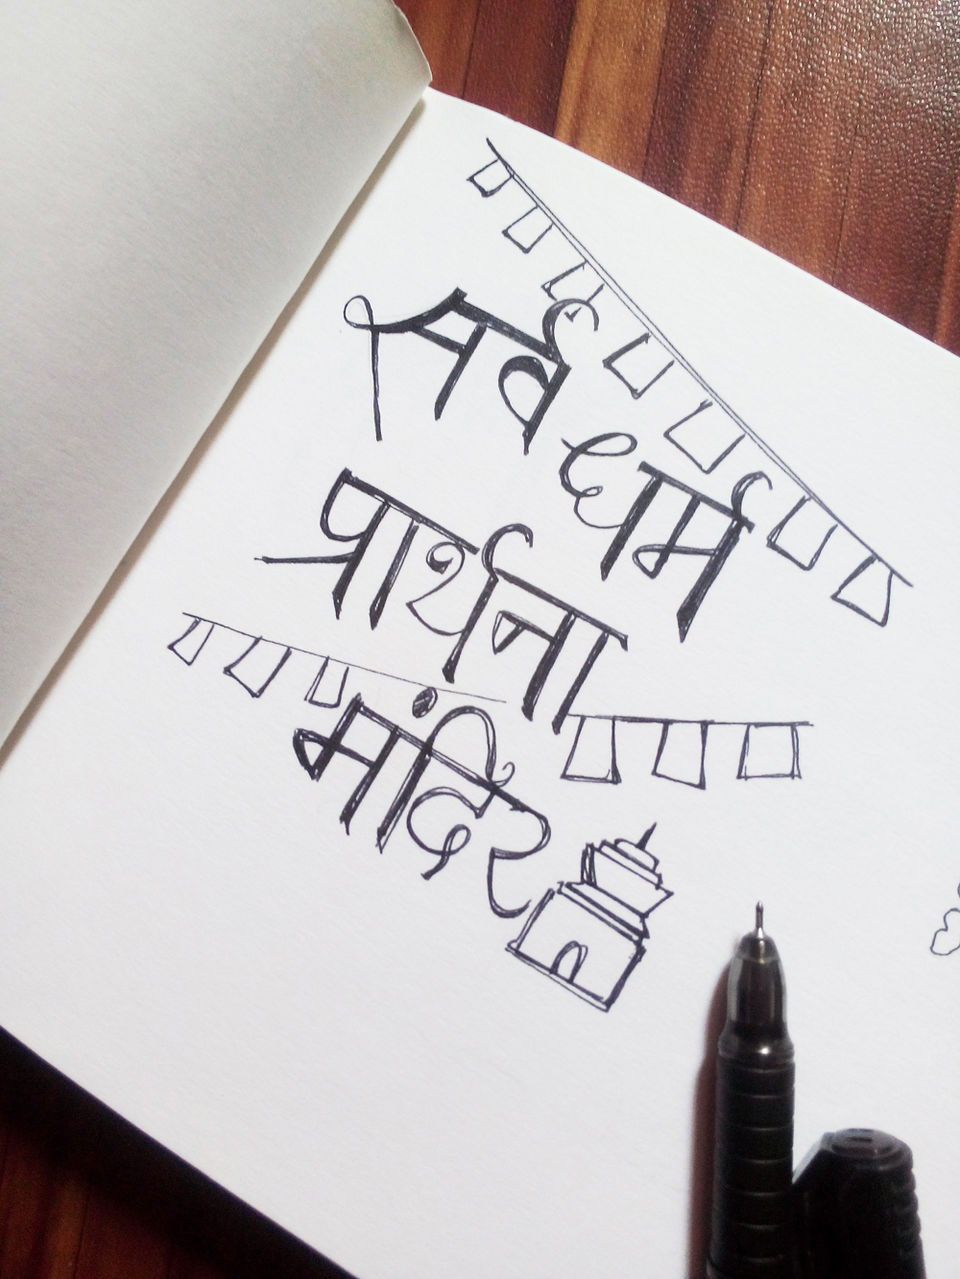 सर्व
धर्म
प्रार्थना
मंदिर